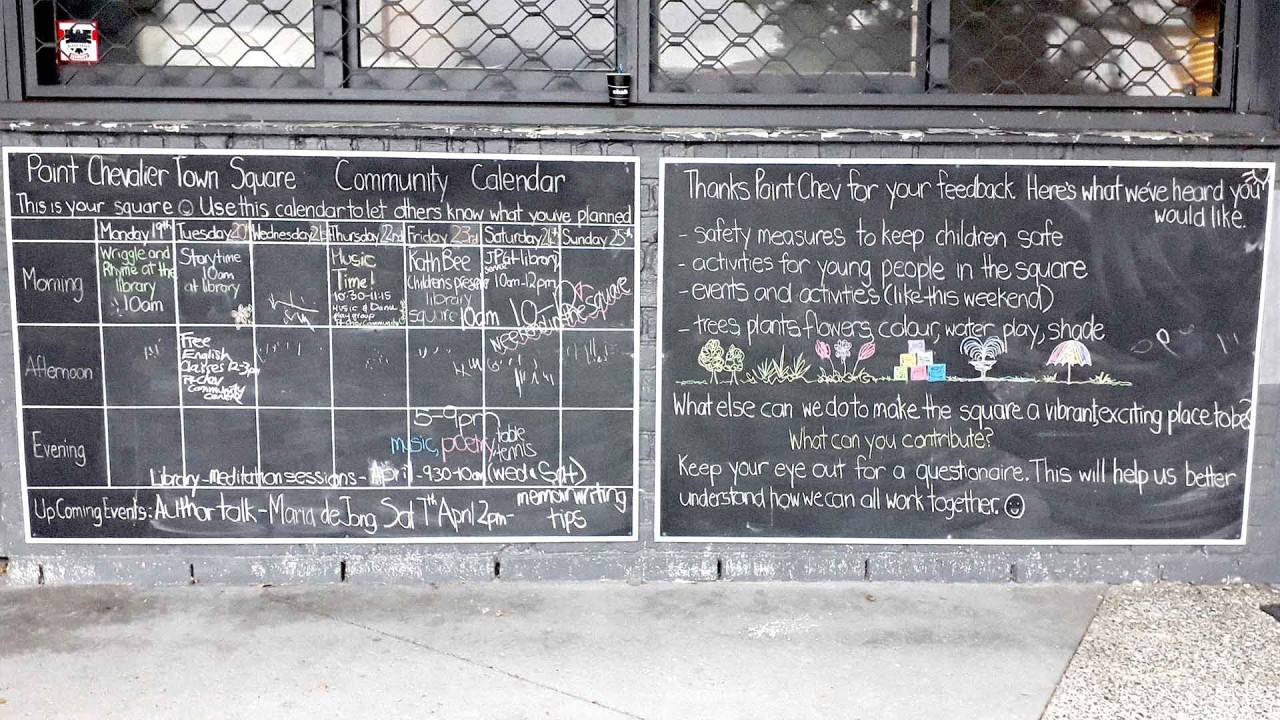 Point Chevalier Town Square Community Calendar
This is your square Use this calendar to let others know what youve planned
Monday 19th Tuesday 20th Wednesday 21st Thursday 22nd Friday 23rd Saturday 24th Sunday 25th
Morning
Wriggle and
Rhyme at the
library
10am
Storytime
10am
at library
Music
Time!
10:30-11:15
Music & Dance
play group
Pt chev Community
Kath Bee
Childrens
library
square 10am
JP at library
service
10am-12pm
the square
Afternoon
Free
English
Classes 12-3pm
Pt chev
Community
centre
Evening
5-9pm
music, poetry, table
tennis
Library-meditation sessions-April-9.30-10am (wed & Sat)
Up Coming Events: Author talk-Maria de Jong Sat 7th April 2pm-
memoir writing
tips
Thanks Point Chev for your feedback. Here's what we've heard you
would like.
- safety measures to keep children safe
- activities for young people in the square
- events and activities (like this weekend)
- trees, plants, flowers, colour, water, play, shade
What else can we do to make the square a vibrant, exciting place to be?
What can you contribute?
Keep your eye out for a questionaire. This will help us better
understand how we can all work together.